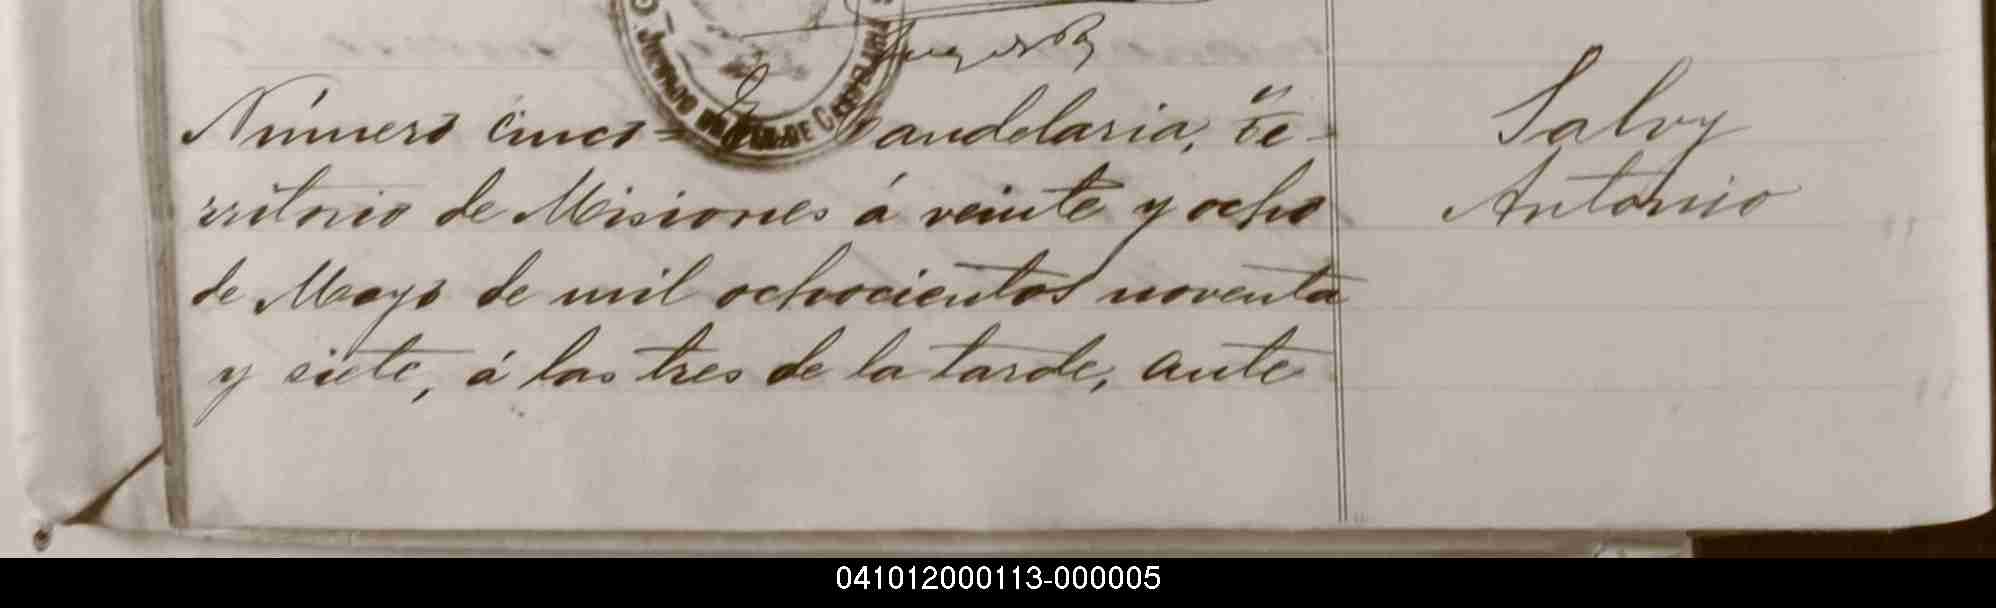 JUZGADO DE PAZ DE CANDELARIA
Número cinco = En Candelaria, te-
rritorio de Misiones á veinte y ocho
de Mayo de mil ochocientos noventa
y siete, á las tres de la tarde, ante
Salvy
Antonio
041012000113-000005